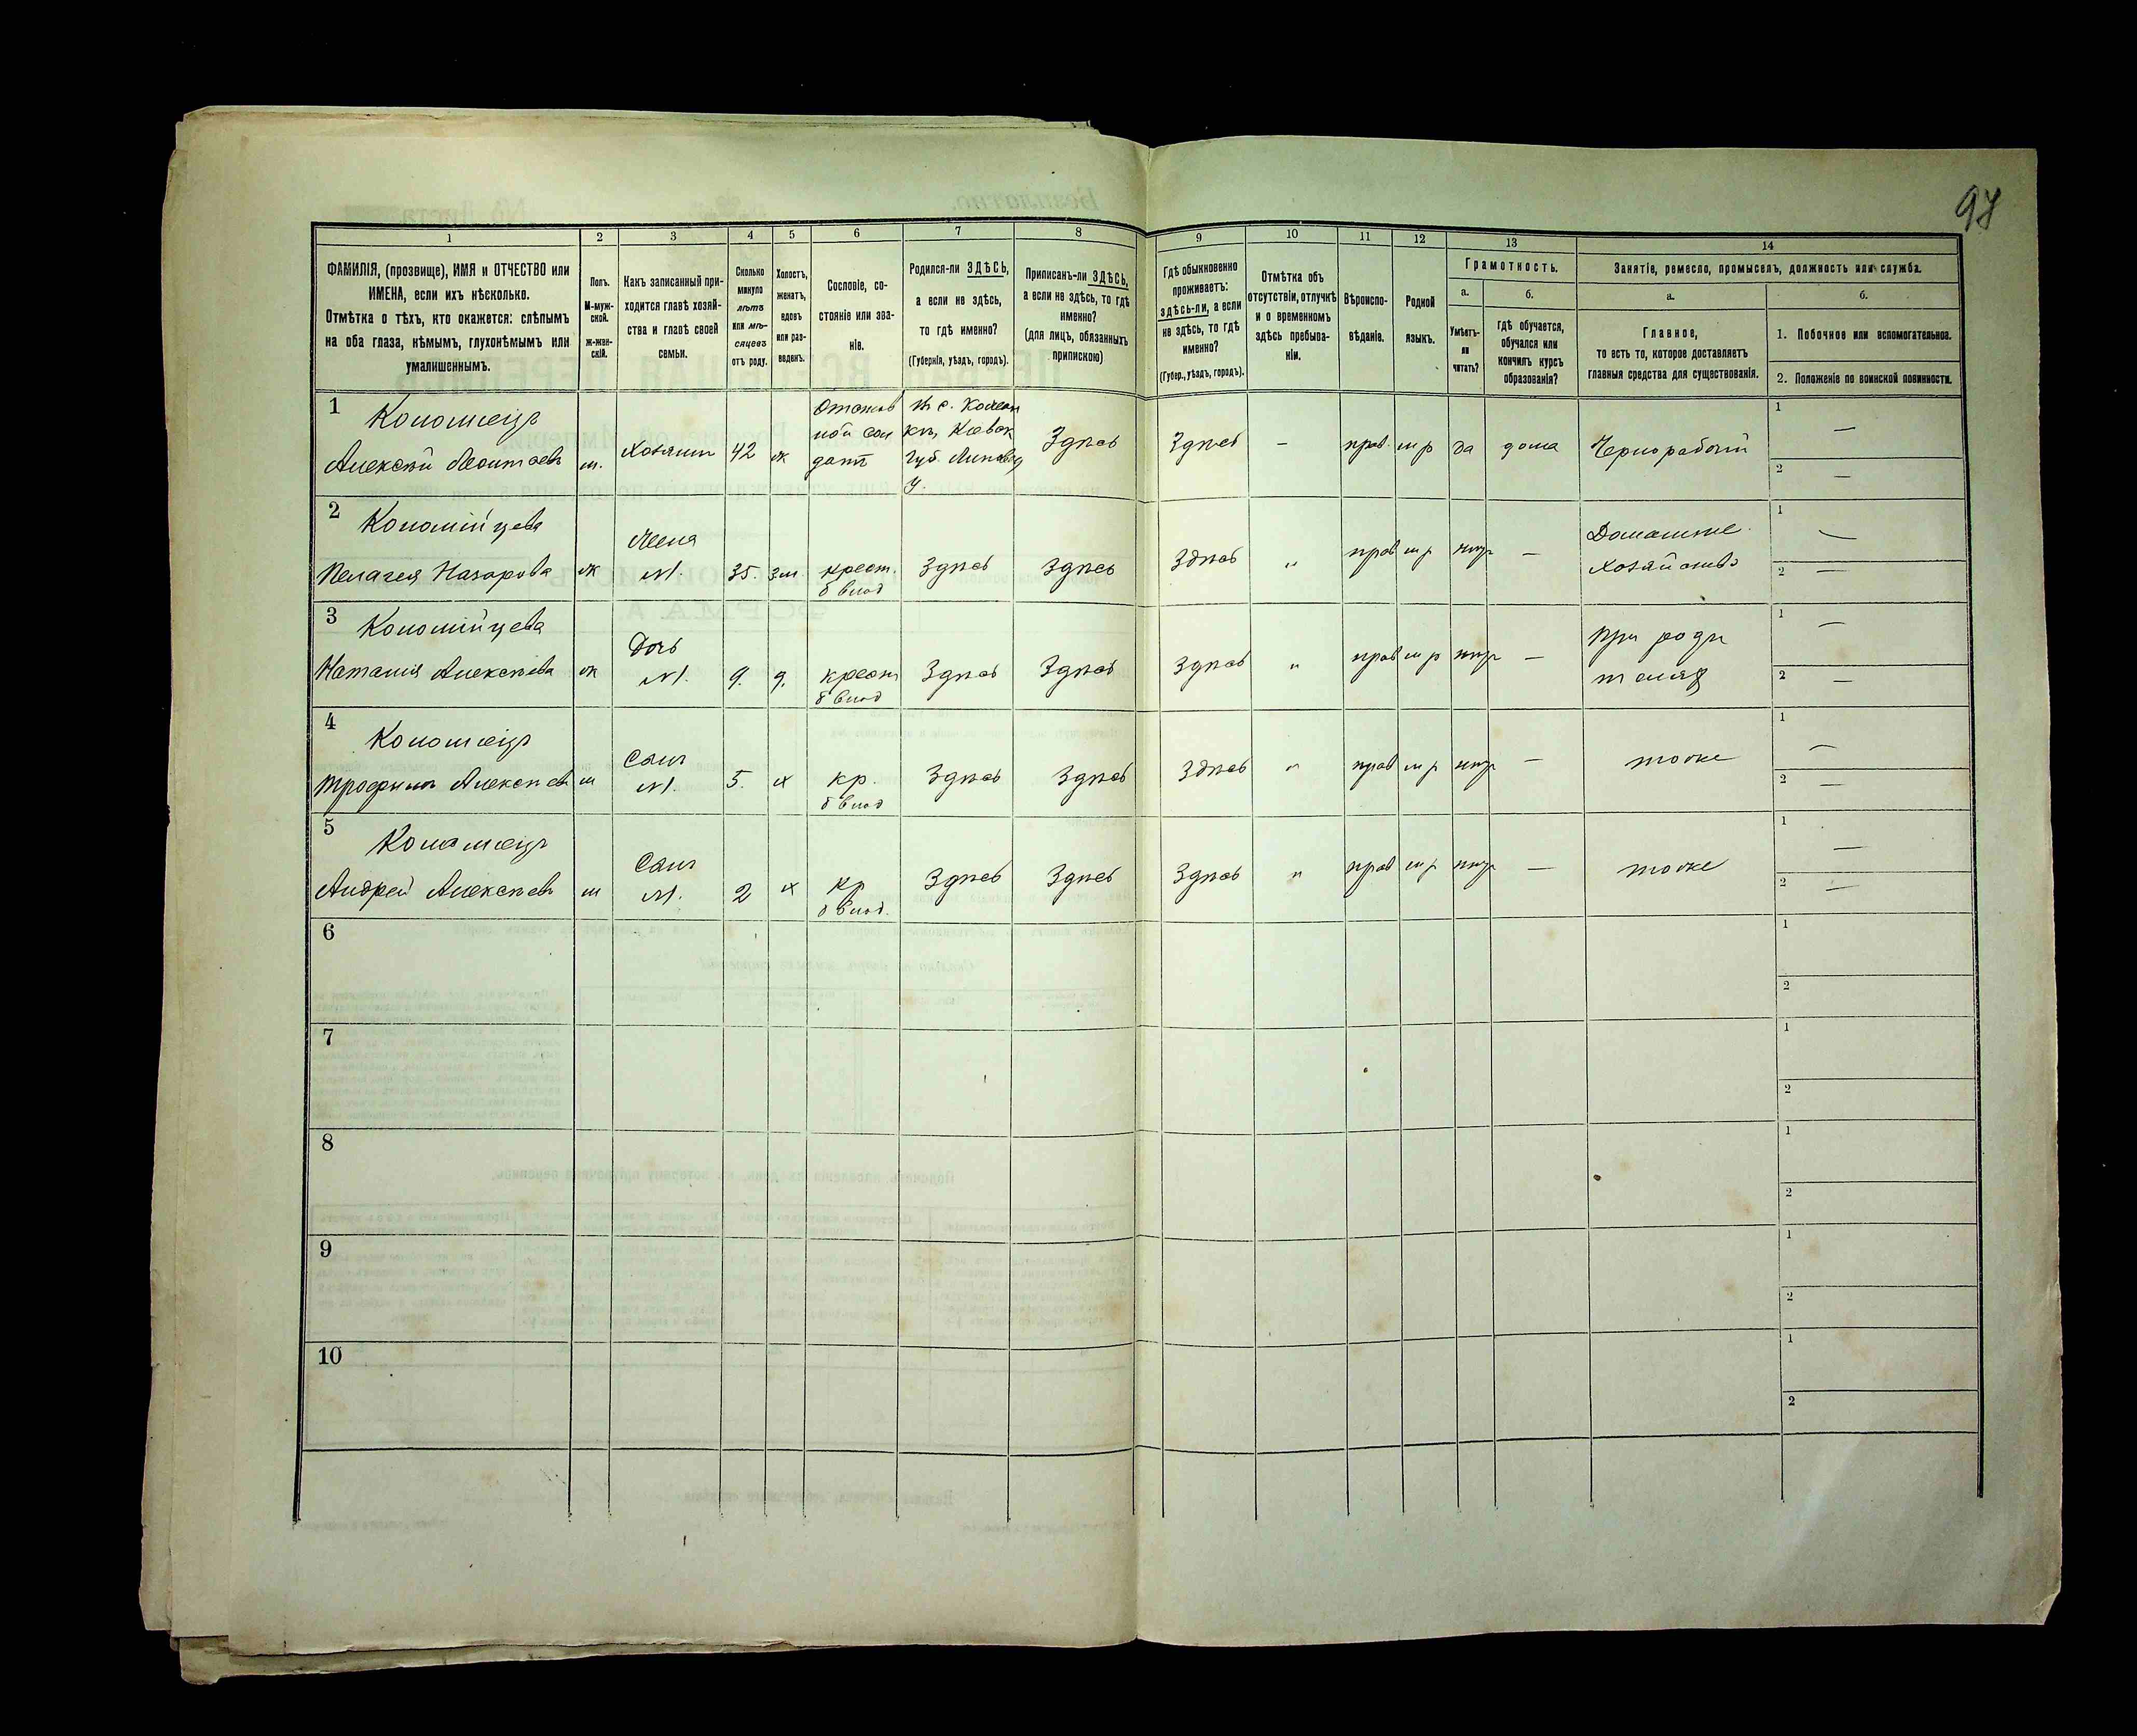 97
1 2 3 4 5 6 7 8 9 10 11 12 13 14
ФАМИЛІЯ, (прозвище), ИМЯ и ОТЧЕСТВО или
ИМЕНА, если ихъ нѣсколько.
Отмѣтка о тѣхъ, кто окажется: слѣпымъ
на оба глаза, нѣмымъ, глухонѣмымъ или
умалишеннымъ.
Полъ.
М-муж-
ской.
ж-жен-
скій.
Какъ записанный при-
ходится главѣ хозяй-
ства и главѣ своей
семьи.
Сколько
минуло
лѣтъ
или мѣ-
сяцевъ
отъ роду.
Холостъ,
женатъ,
вдовъ
или раз-
веденъ.
Сословіе, со-
стояніе или зва-
ніе.
Родился-ли ЗДѢСЬ,
а если не здѣсь,
то гдѣ именно?
(Губернія, уѣздъ, городъ).
Приписанъ-ли ЗДѢСЬ,
а если не здѣсь, то гдѣ
именно?
(для лицъ, обязанныхъ
припискою)
Гдѣ обыкновенно
проживаетъ:
здѣсь-ли, а если
не здѣсь, то гдѣ
именно?
(Губер., уѣздъ, городъ).
Отмѣтка объ
отсутствіи, отлучкѣ
и о временномъ
здѣсь пребыва-
ніи.
Вѣроиспо-
вѣданіе.
Родной
языкъ.
Грамотность.
а.
Умѣетъ-
ли
читать?
б.
гдѣ обучается,
обучался или
кончилъ курсъ
образованія?
Занятіе, ремесло, промыселъ, должность или служба.
а.
Главное,
то есть то, которое доставляетъ
главныя средства для существованія.
б.
1. Побочное или вспомогательное.
2. Положеніе по воинской повинности.
1
Коломіецъ
Алексѣй Леонтьевъ
м.
Хозяинъ
42
ж
Отстав
ной сол
датъ
Губ. Липовец
у.
Здѣсь
Здѣсь
—
прав.
м р
да
дома
Чернорабочій
1 —
2 —
2
Коломійцева
Пелагея Назарова
ж
Жена
№1.
35.
зм.
крест.
б влад
Здѣсь
Здѣсь
Здѣсь
"
прав
м р
нѣтъ
—
Домашнее
хозяйство
1 —
2 —
3
Коломійцева
Наталія Алексѣева
ж
Дочь
№1.
9.
д.
крест
б влад
Здѣсь
Здѣсь
Здѣсь
"
прав
м р
нѣтъ
—
при роди
теляхъ
1 —
2 —
4
Коломіецъ
Трофимъ Алексѣевъ
м
Сынъ
№1.
5.
х
кр.
б влад
Здѣсь
Здѣсь
Здѣсь
"
прав
м р
нѣтъ
—
тоже
1 —
2 —
5
Коломіецъ
Андрей Алексѣевъ
м
Сынъ
№1.
2
х
кр
б влад.
Здѣсь
Здѣсь
Здѣсь
"
прав
м р
нѣтъ
—
тоже
1 —
2 —
6
1
2
7
1
2
8
1
2
9
1
2
10
1
2